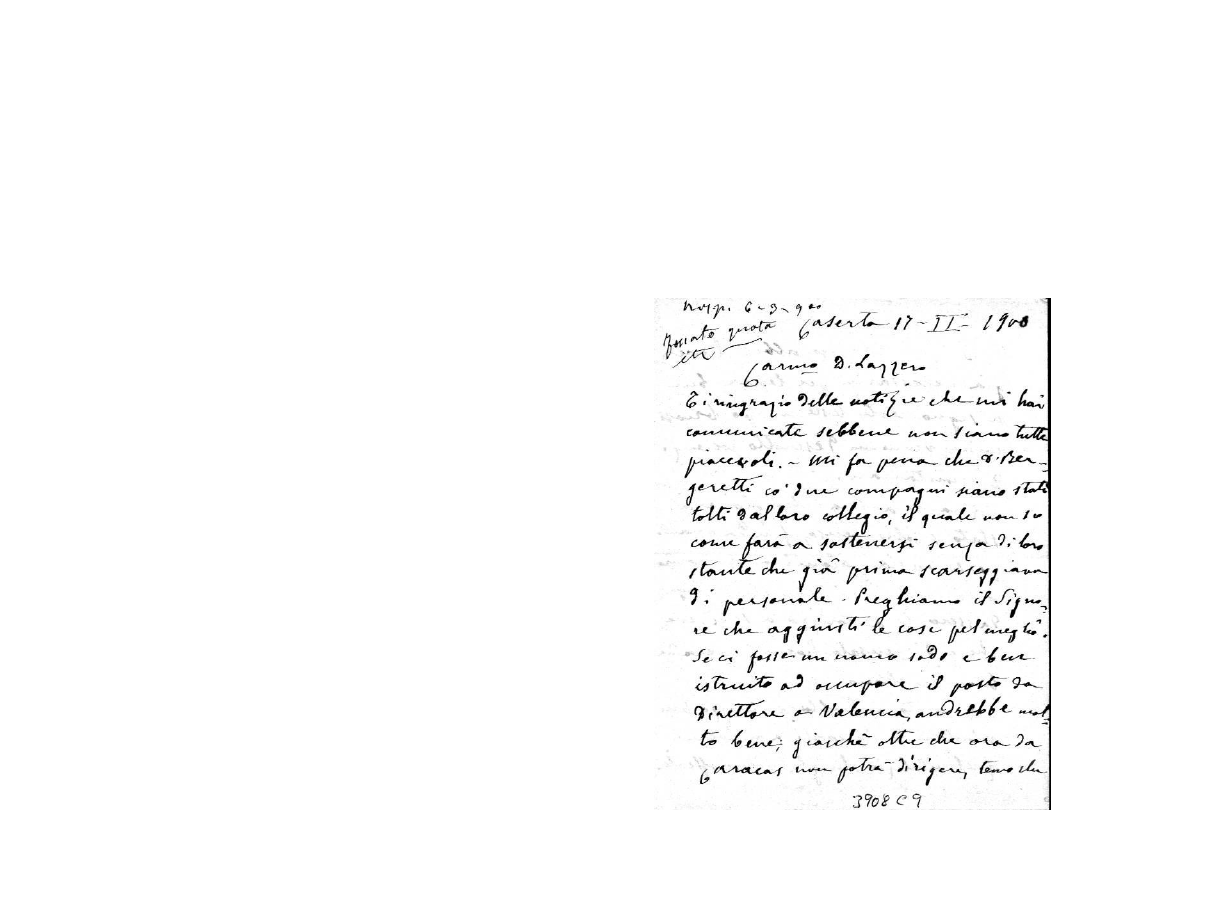 Risp. 6-3-900
Caserta 17-II-1900
Carmo D. Lazzero
Ti ringrazio delle notizie che mi hai
comunicate sebbene non siano tutte
piacevoli. - Mi fa pena che D. Ber-
geretti co' due compagni siano stati
tolti dal loro collegio, il quale non so
come farà a sostenersi senza di loro
stante che già prima scarseggiava
di personale. Preghiamo il Signo-
re che aggiusti le cose pel meglio.
Se ci fosse un uomo sodo e ben
istruito ad occupare il posto da
Direttore a Valencia, andrebbe mol-
to bene; giacchè oltre che ora da
Caracas non potrà dirigere, temo che
3908 C 9